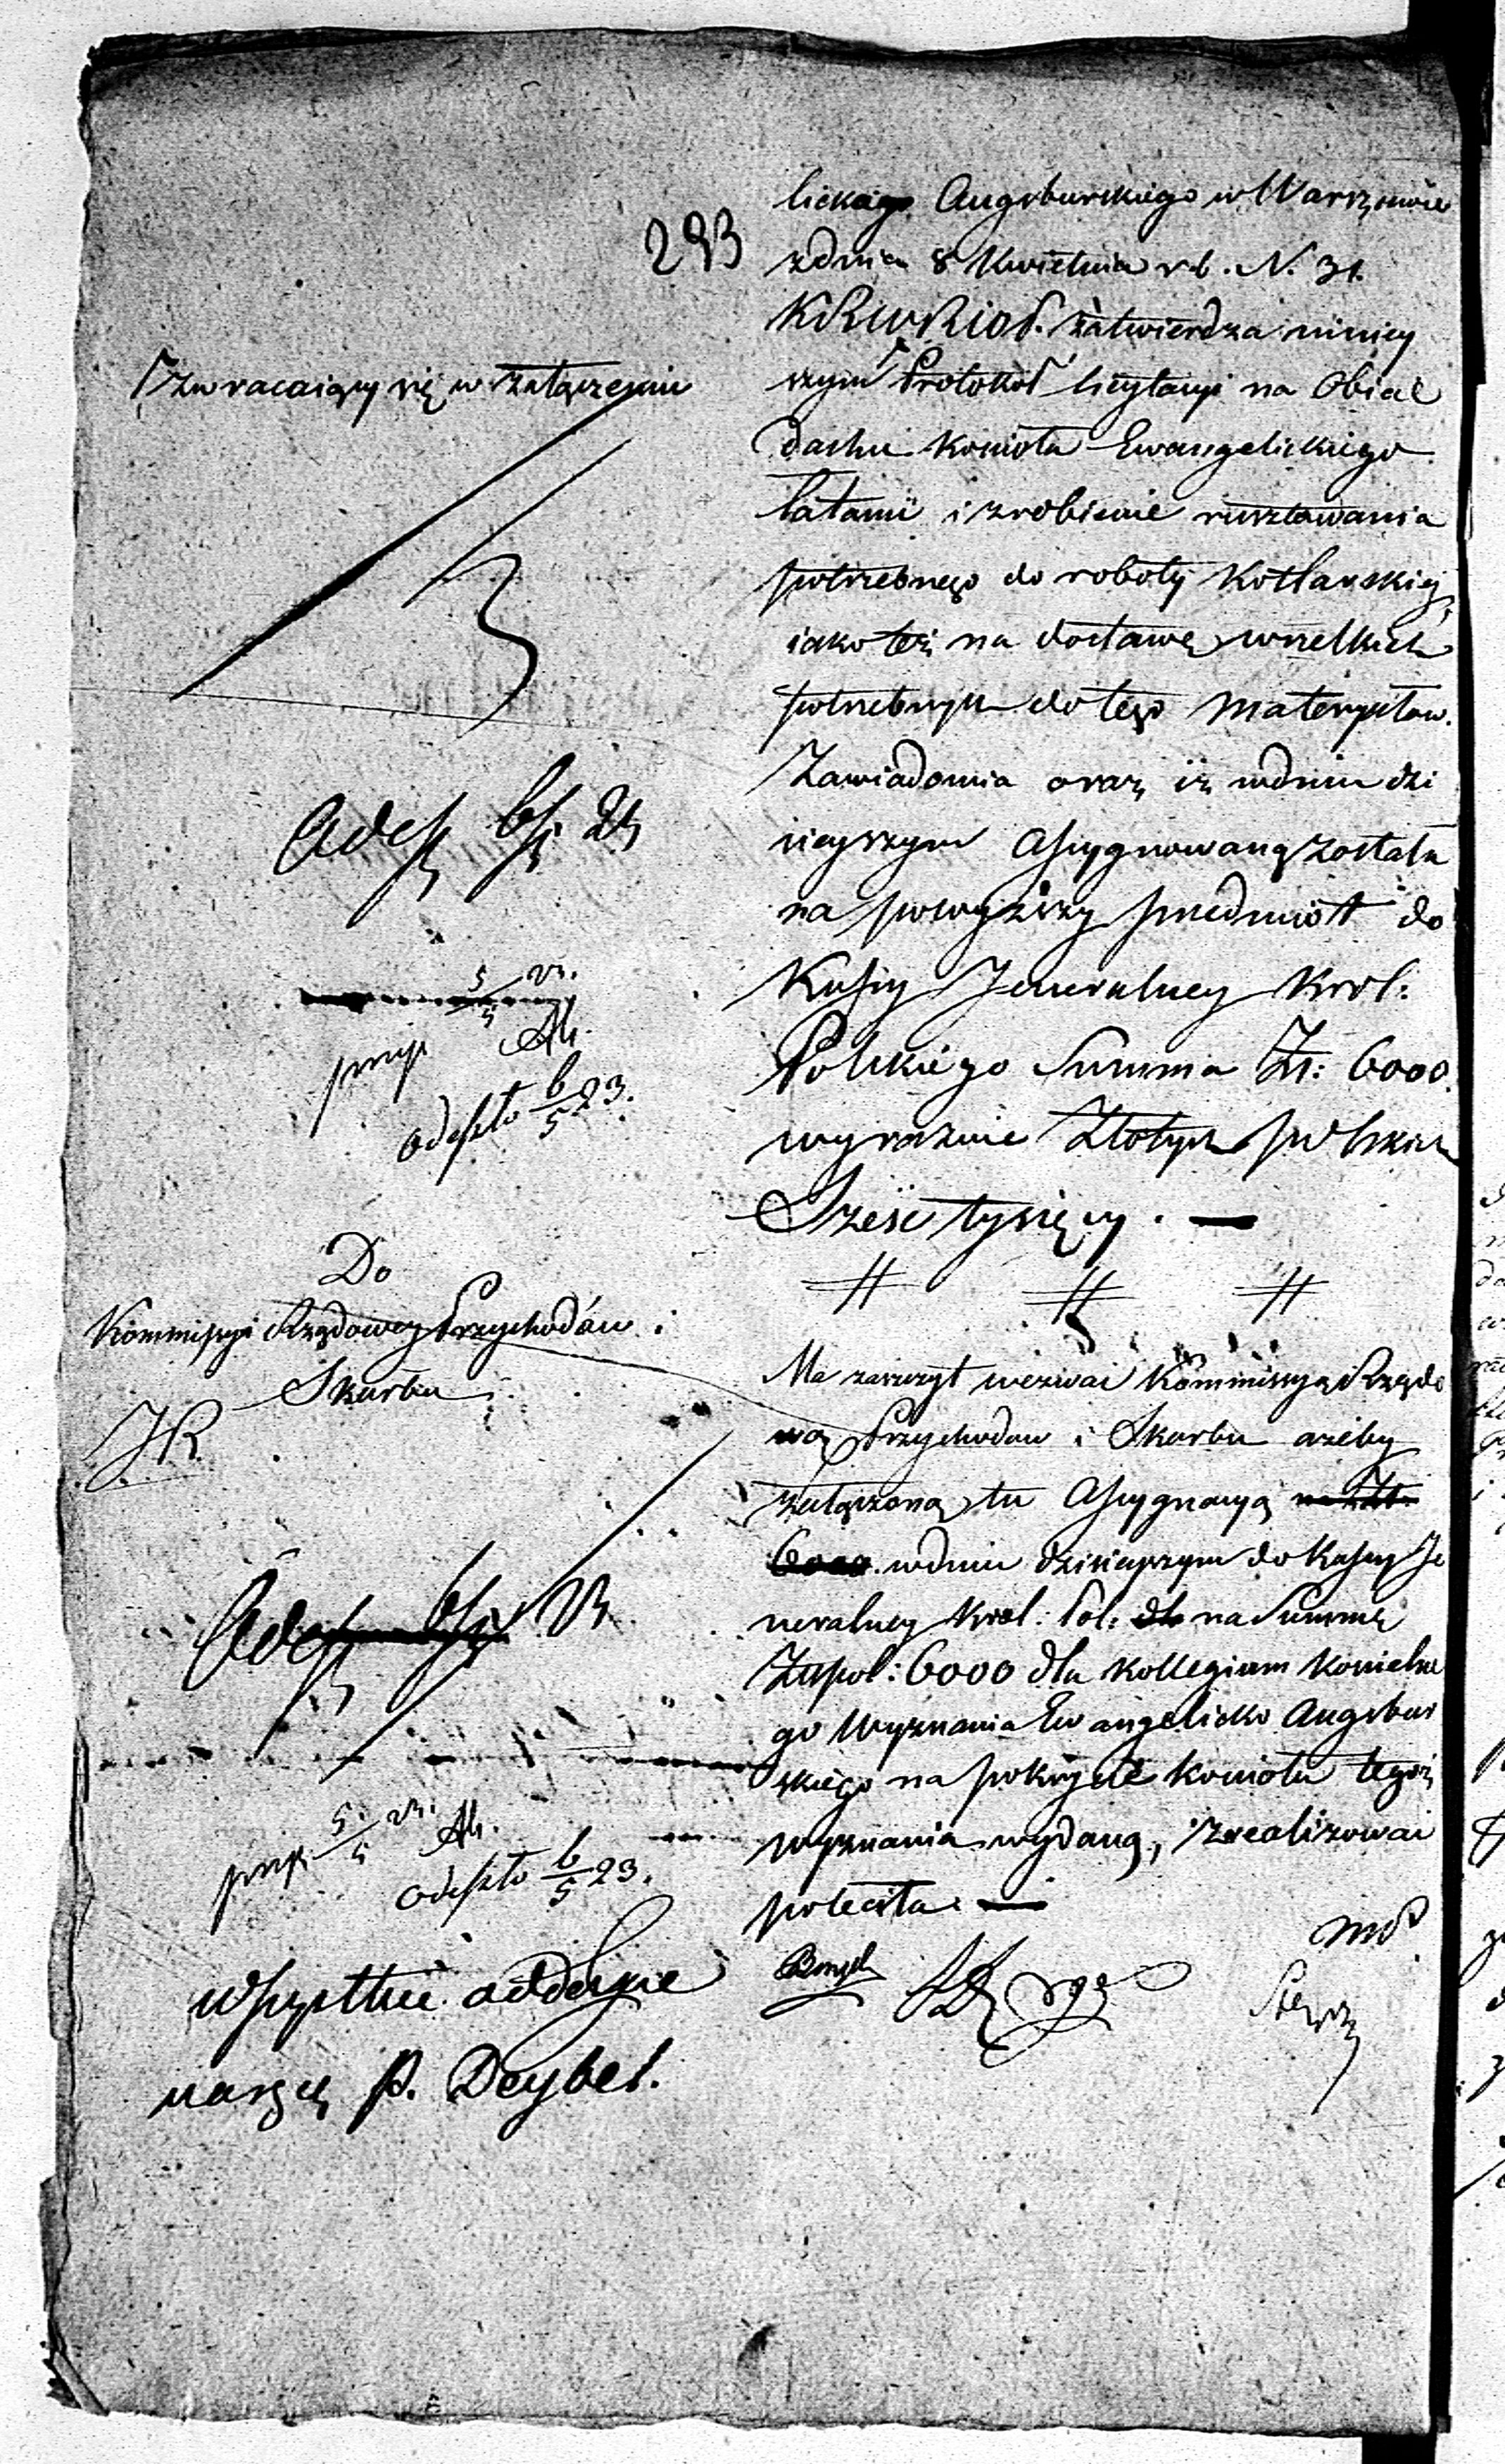 293
lickiego Augsburskiego w Warszawie
z dnia 8 Kwietnia r. b. N. 31.
KRWRiOP. zatwierdza niniey
szym Protokoł licytacyi na Obicie
[zwracaiący się w załączeniu
dachu kościoła Ewangelickiego
łatami i zrobienie rusztowania
potrzebnego do roboty Kotlarskiey,
iako też na dostawę wszelkich
potrzebnych do tego Materyałow.
Zawiadomia oraz iż w dniu dzi
sieyszym Assygnowaną została
na powyższy przedmiot do
Kassy Jeneralney Krol:
Polskiego Summa Zł: 6000.
wyraźnie Złotych polskich
Sześć tysięcy. —
5/5 23.
przep
odeszło 6/5 23.
Do
Kommissyi Rządowey Przychodów i
Skarbu
Ma zaszczyt wezwać Kommissyą Rządo
wą Przychodow i Skarbu ażeby
załączoną tu Assygnacyą na Zł:
6000. w dniu dzisieyszym do Kassy Je
neralney Krol: Pol: na Summę
Zł pol: 6000 dla Kollegium Kościelne
go Wyznania Ewangelicko Augsbur
skiego na pokrycie kościoła tegoż
wyznania wydaną, zrealizować
poleciła. —
przep. 5/5 23.
odeszło 6/5 23.
wszystkie
P. Deybel.